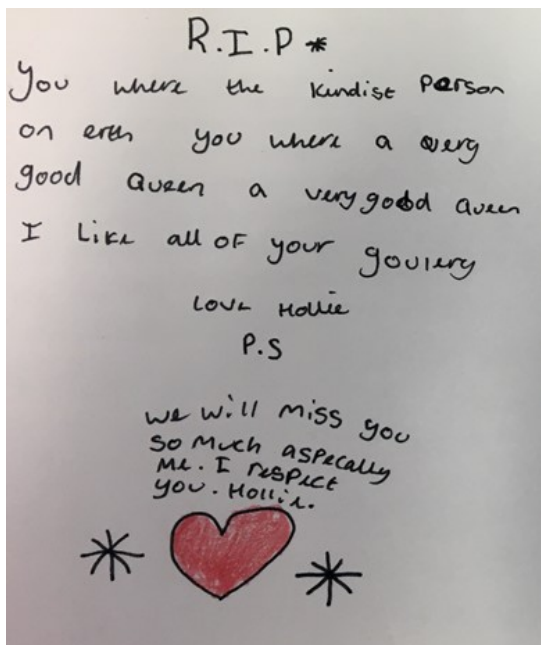 R.I.P *
You where the kindist person
on erth you where a very
good Queen a very good Queen
I Like all OF your goulery
Love Hollie
P.S
we will miss you
so much aspecally
me. I respect
you. Hollie.